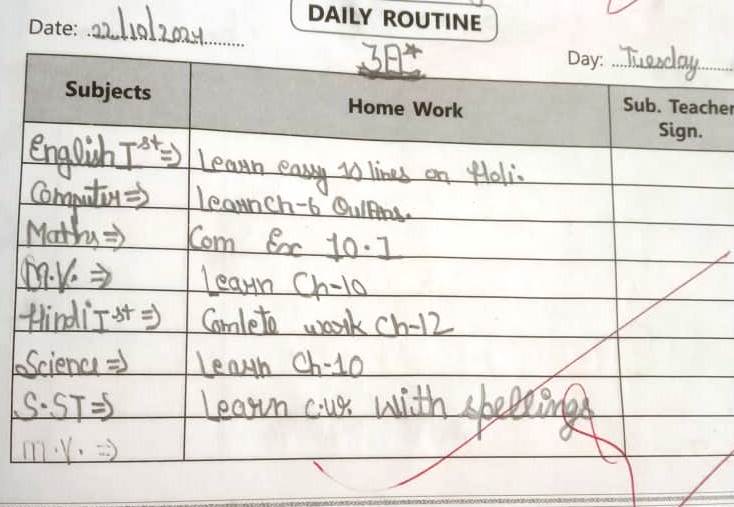 DAILY ROUTINE
Date: 22/10/2024
3A*
Day: Tuesday
Subjects Home Work Sub. Teacher Sign.
English Ist => Learn eassy 10 lines on Holi.
Computer => Learn Ch-6 Qu/Ans.
Maths => Com Ex 10.1
M.V. => Learn Ch-10
Hindi Ist => Comlete work Ch-12
Science => Learn Ch-10
S.ST => Learn c.w. with spellings
M.V. =>